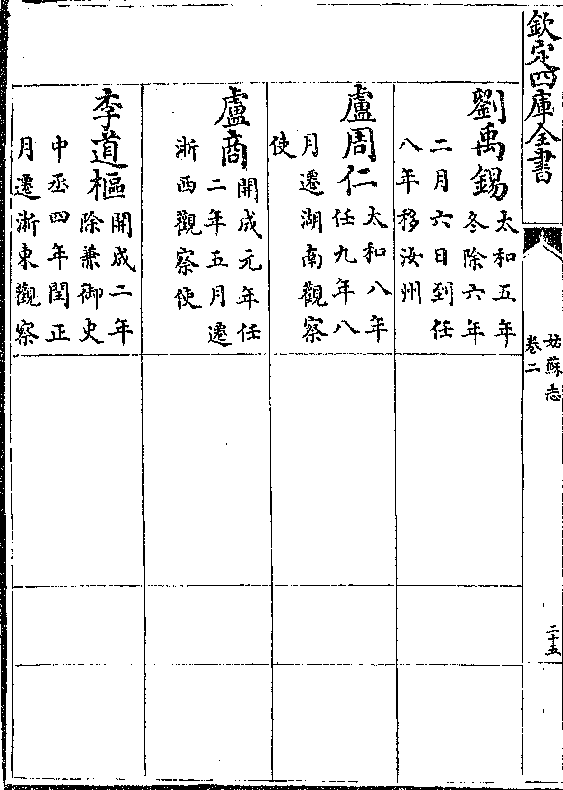 欽定四庫全書
姑蘇志
卷二
二十五
劉禹錫太和五年
冬除六年
二月六日到任
八年移汝州
盧周仁太和八年
任九年八
月遷湖南觀察
使
盧商開成元年任
二年五月遷
浙西觀察使
李道樞開成二年
除兼御史
中丞四年閏正
月遷浙東觀察